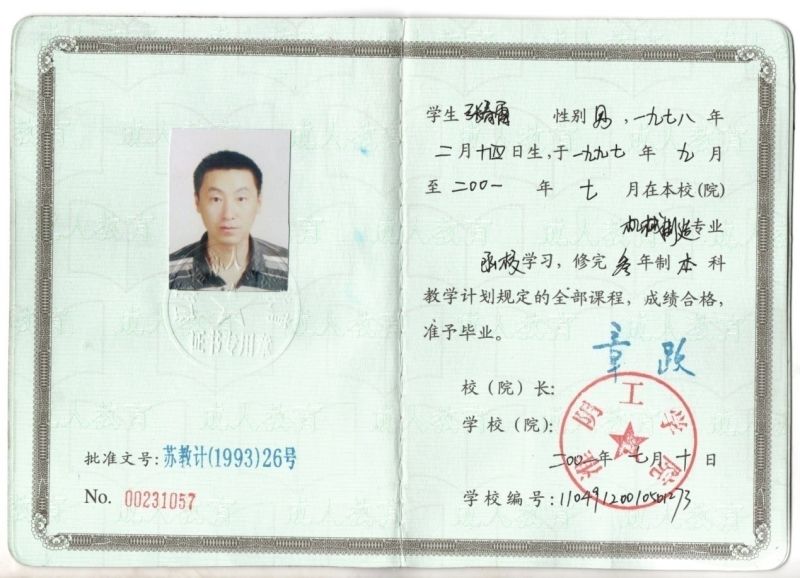 证书专用章
批准文号: 苏教计(1993)26号
No. 00231057
学生 性别 男, 一九七八 年
二 月 十四 日生, 于 一九九七 年 九 月
至 二00一 年 七 月在本校(院)
机械制造 专业
函授 学习, 修完 年制 本 科
教学计划规定的全部课程, 成绩合格,
准予毕业。
章 跃
校 (院) 长:
学 校 (院):
淮阴工学院
年 七 月 十 日
学校编号: